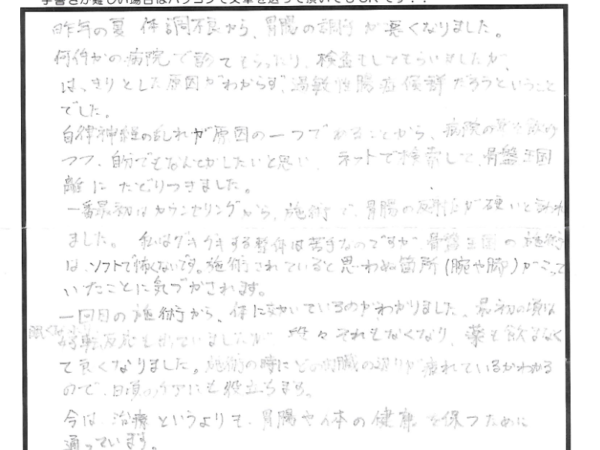 手書きが難しい場合はパソコンで文章を送って頂いてもOKです!!
昨年の夏 体調不良から、胃腸の調子が悪くなりました。
何件かの病院で診てもらったり、検査もしてもらいましたが、
はっきりとした原因がわからず、過敏性腸症候群だろうということ
でした。
自律神経の乱れが原因の一つであることから、病院の薬を飲み
つつ、自分でもなんとかしたいと思い、ネットで検索して、骨盤王国
離にたどりつきました。
一番最初はカウンセリングから、施術で、胃腸の が硬いと言われ
ました。 私はバキバキする整体は苦手なのですが、骨盤王国の施術
は、ソフトで怖くないです。施術されていると思わぬ箇所(腕や脚)がこって
いたことに気づかされます。
一回目の施術から、体に効いているのがわかりました。最初の頃は
好転反応も出ていましたが 段々それもなくなり、薬も飲まなく
て良くなりました。施術の時にどの内臓の辺りが疲れているかわかる
ので、日頃のケアにも役立ちます。
今は治療というよりも、胃腸や体の健康を保つために
通っています。